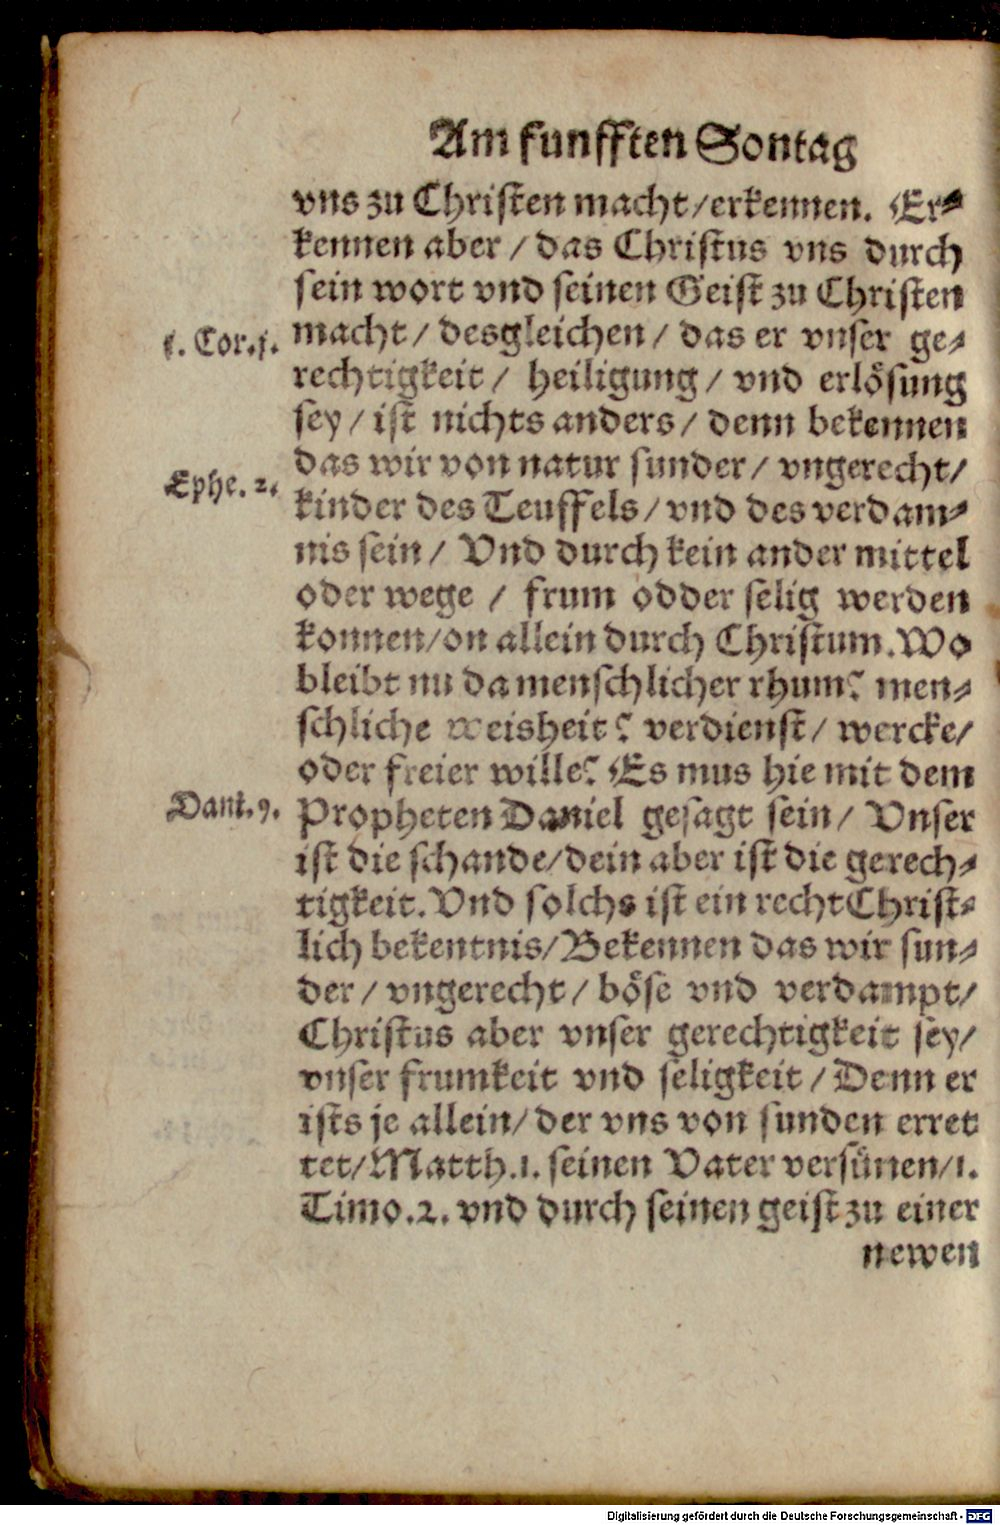 Am funfften Sontag
vns zu Christen macht/erkennen. Er⸗
kennen aber / das Christus vns durch
sein wort vnd seinen Geist zu Christen
1. Cor. 1.
macht / desgleichen / das er vnser ge⸗
rechtigkeit / heiligung / vnd erlösung
sey / ist nichts anders / denn bekennen
das wir von natur sunder / vngerecht /
Ephe. 2.
kinder des Teuffels / vnd des verdam⸗
nis sein / Vnd durch kein ander mittel
oder wege / frum odder selig werden
konnen/on allein durch Christum. Wo
bleibt nu da menschlicher rhum? men⸗
schliche weisheit? verdienst / wercke/
oder freier wille? Es mus hie mit dem
Dani. 9.
Propheten Daniel gesagt sein / Vnser
ist die schande/dein aber ist die gerech⸗
tigkeit. Vnd solchs ist ein recht Christ⸗
lich bekentnis/Bekennen das wir sun⸗
der / vngerecht / böse vnd verdampt/
Christus aber vnser gerechtigkeit sey/
vnser frumkeit vnd seligkeit / Denn er
ists je allein/ der vns von sunden erret
tet/Matth. 1. seinen Vater versünen/1.
Timo. 2. vnd durch seinen geist zu einer
newen
Digitalisierung gefördert durch die Deutsche Forschungsgemeinschaft - DFG